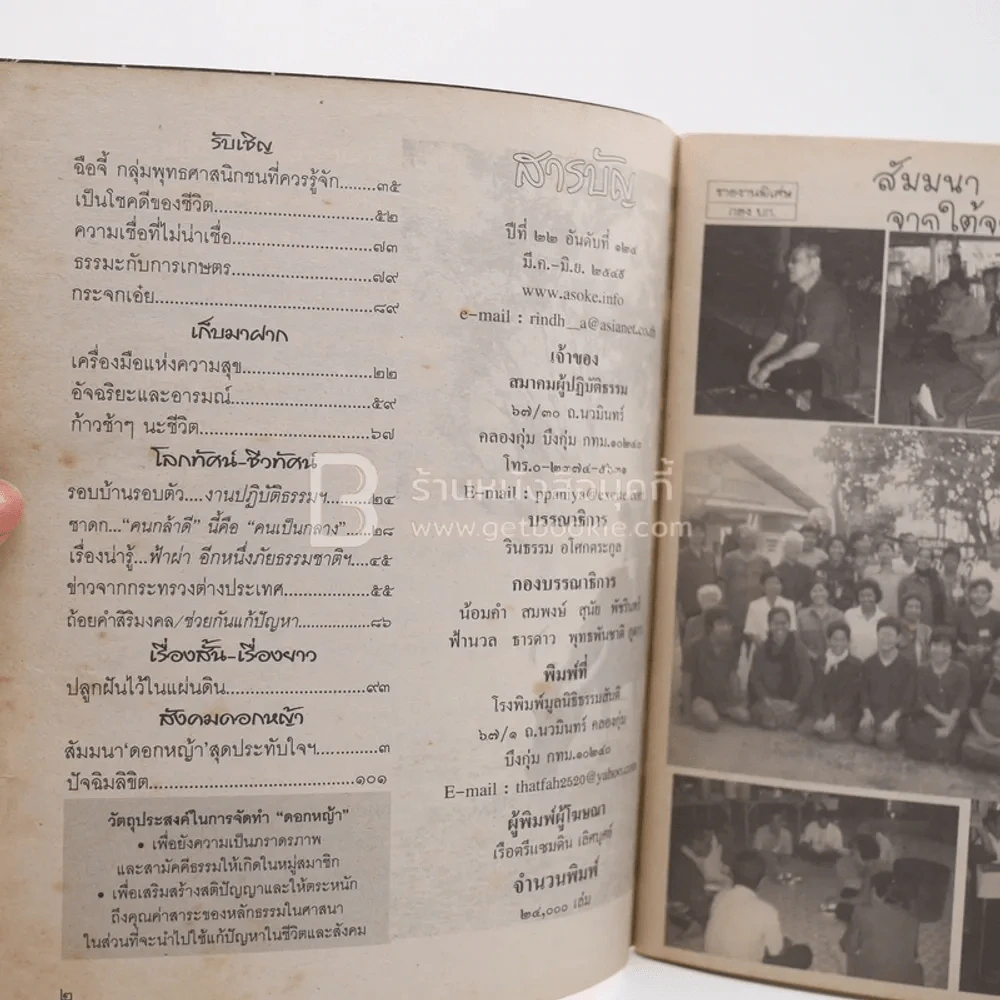 รับเชิญ
ฉือจี้ กลุ่มพุทธศาสนิกชนที่ควรรู้จัก........๓๕
เป็นโชคดีของชีวิต....................๕๒
ความเชื่อที่ไม่น่าเชื่อ....................๗๓
ธรรมะกับการเกษตร....................๗๙
กระจกเอ๋ย....................๘๙
เก็บมาฝาก
เครื่องมือแห่งความสุข....................๒๒
อัจฉริยะและอารมณ์....................๕๙
ก้าวช้าๆ นะชีวิต....................๖๗
โลกทัศน์-ชีวทัศน์
รอบบ้านรอบตัว....งานปฏิบัติธรรมฯ..........๒๔
ชาดก..."คนกล้าดี" นี้คือ "คนเป็นกลาง"......๒๘
เรื่องน่ารู้...ฟ้าผ่า อีกหนึ่งภัยธรรมชาติฯ....๔๕
ข่าวจากกระทรวงต่างประเทศ..............๕๕
ถ้อยคำสิริมงคล/ช่วยกันแก้ปัญหา..........๘๖
เรื่องสั้น-เรื่องยาว
ปลูกฝันไว้ในแผ่นดิน....................๙๓
สังคมดอกหญ้า
สัมมนา'ดอกหญ้า'สุดประทับใจฯ..........๓
ปัจฉิมลิขิต....................๑๐๑
วัตถุประสงค์ในการจัดทำ "ดอกหญ้า"
• เพื่อยังความเป็นภราดรภาพ
และสามัคคีธรรมให้เกิดในหมู่สมาชิก
• เพื่อเสริมสร้างสติปัญญาและให้ตระหนัก
ถึงคุณค่าสาระของหลักธรรมในศาสนา
ในส่วนที่จะนำไปใช้แก้ปัญหาในชีวิตและสังคม
๒
สารบัญ
ปีที่ ๒๒ อันดับที่ ๑๒๔
มี.ค.-มิ.ย. ๒๕๔๙
www.asoke.info
e-mail : rindh_a@asianet.co.th
เจ้าของ
สมาคมผู้ปฏิบัติธรรม
๖๗/๓๐ ถ.นวมินทร์
คลองกุ่ม บึงกุ่ม กทม.๑๐๒๔๐
โทร.๐-๒๓๗๔-๕๖๓๑
E-mail :
บรรณาธิการ
รินธรรม อโศกตระกูล
กองบรรณาธิการ
น้อมคำ สมพงษ์ สุนัย พัชรินทร์
ฟ้านวล ธารดาว พุทธพันชาติ
พิมพ์ที่
โรงพิมพ์มูลนิธิธรรมสันติ
๖๗/๑ ถ.นวมินทร์ คลองกุ่ม
บึงกุ่ม กทม.๑๐๒๔๐
E-mail : thatfah2520@yahoo.com
ผู้พิมพ์ผู้โฆษณา
เรือตรีแซมดิน เลิศบุศย์
จำนวนพิมพ์
๒๔,๐๐๐ เล่ม
ร้านหนังสือบุคกี้
www.getbookie.com
รายงานพิเศษ
กอง บก.
สัมมนา
จากใต้จ